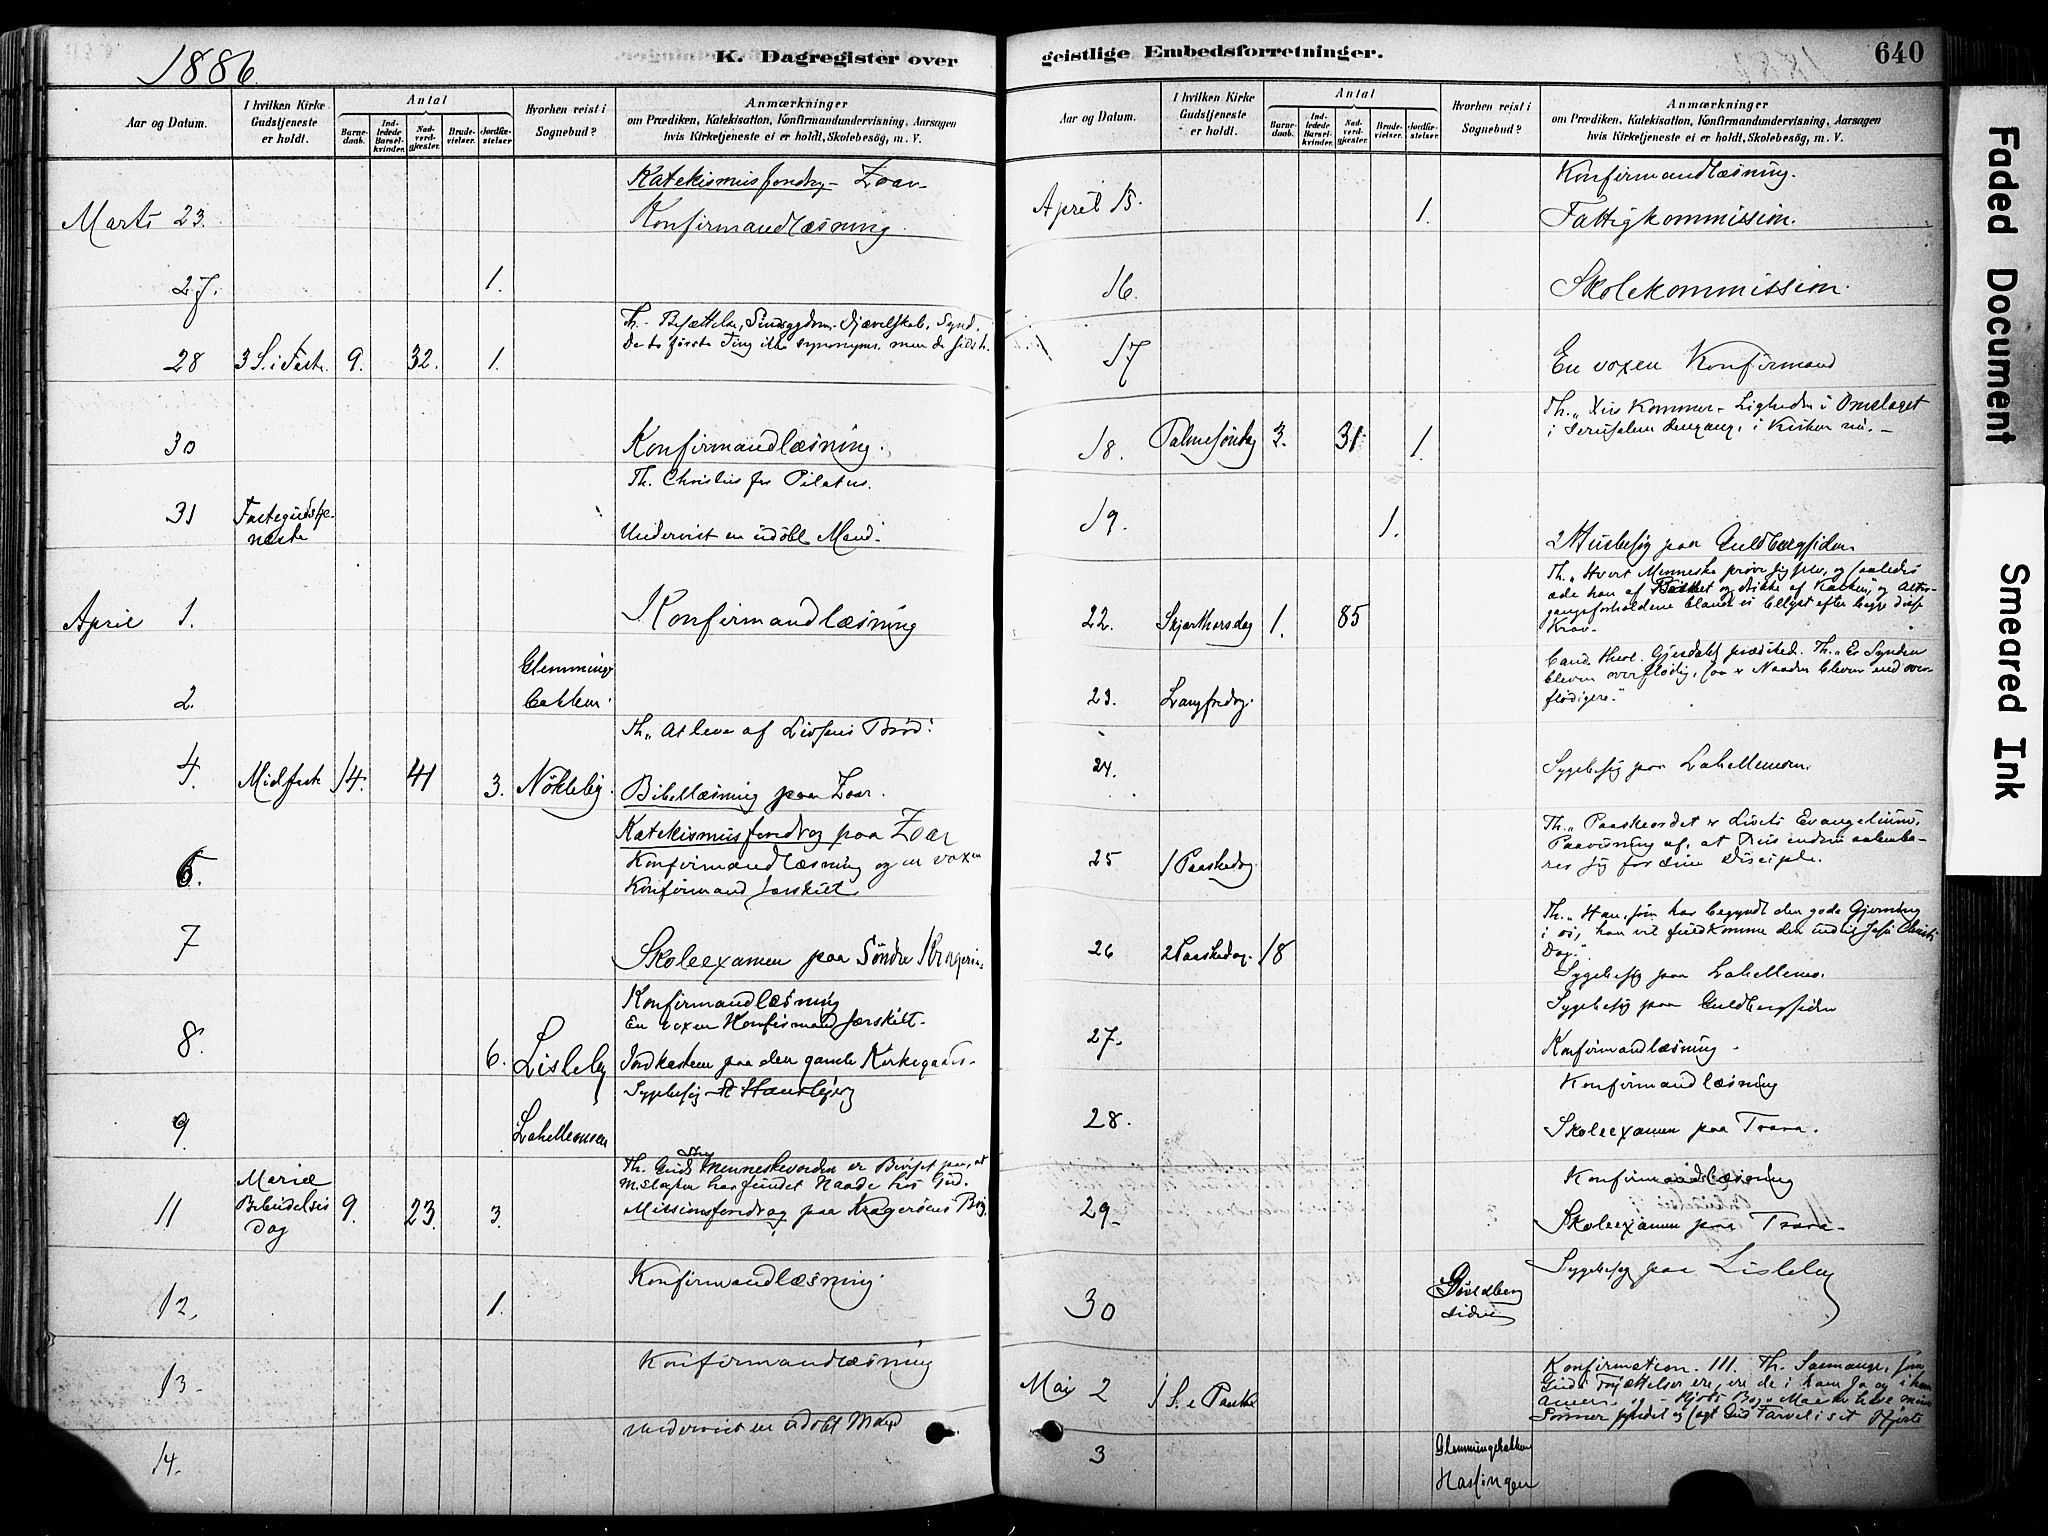 1886.
K. Dagregister over
Aar og Datum.
I hvilken Kirke Gudstjeneste er holdt.
Antal
Barnedaab.
Indledede Barselkvinder.
Nadverdgjæster.
Brudevielser.
Jordfæstelser
Hvorhen reist i Sognebud?
Anmærkninger
om Prædiken, Katekisation, Konfirmandundervisning, Aarsagen
hvis Kirketjeneste ei er holdt, Skolebesøg, m. V.
Katekismusforedrag - Zoar
Marts 23. Konfirmandlæsning
27. 1.
Th. Besættelse, Sindssygdom. Djævelskab, Synd.
De to første Ting ikke synonyme. men de sidste.
28 3 S. i Faste 9. 32. 1.
30 Konfirmandlæsning.
Th. Christus for Pilatus.
31 Fastegudstjeneste Undervist en udøbt Mand.
April 1. Konfirmandlæsning
2. Glemmingebakken.
Th. At leve af Livsens Brød.
4. Midfaste 14. 41 3. Nökleby Bibellæsning paa Zoar.
Katekismusforedrag paa Zoar
6. Konfirmandlæsning og en voxen
Konfirmand særskilt
7 Skoleexamen paa Söndre
Konfirmandlæsning
En voxen Konfirmand særskilt.
8. 6. Lisleby Jordkasten paa den gamle Kirkegaard.
Sygebesøg
9 Lahellemoen
Th. Guds Søns Menneskevorden er Beviset paa, at
har fundet Naade hos Gud.
11 Mariæ Bebudelses Dag 9. 23. 3. Missionsforedrag paa Kragerøens
12. 1. Konfirmandlæsning.
13. Konfirmandlæsning
14. Undervist en udøbt Mand
geistlige Embedsforretninger.
640
Aar og Datum.
I hvilken Kirke Gudstjeneste er holdt.
Antal
Barnedaab.
Indledede Barselkvinder.
Nadverdgjæster.
Brudevielser.
Jordfæstelser.
Hvorhen reist i Sognebud?
Anmærkninger
om Prædiken, Katekisation, Konfirmandundervisning, Aarsagen
hvis Kirketjeneste ei er holdt, Skolebesøg, m. V.
Konfirmandlæsning.
April 15. 1. Fattigkommission.
16. Skolekommission.
17 En voxen Konfirmand
Th. Ligheden i Omslaget
i Jerusalem dengang, i Kirken nu.
18. Palmesöndag 3. 31. 1.
19. 1. 2 Husbesøg paa Guldbergsiden
Th. "Hvert Menneske prøve sig selv, og saaledes
æde han af Brødet og drikke af Kalken", og Altergangsforholdene
blandt os belyst efter begge disse
Krav.
22. Skjærthorsdag 1. 85
Cand. theol. Gjesdahl prædiked. Th. "Er Synden
bleven overflødig, saa er Naaden bleven end overflødigere."
23. Langfredag.
24. Sygebesøg paa Lahellemoen.
Th. "Paaskeordet er Livets Evangelium,
Paavisning af, at
sig for sine Disciple.
25 1 Paaskedag
Th. "Han, som har begyndt den gode Gjerning
i os, han vil fuldkomme den indtil Jesu Christi
Dag."
26 2 Paaskedag. 18
Sygebesøg paa Lahellemoen.
Sygebesøg paa Guldbergsiden
27. Konfirmandlæsning.
Konfirmandlæsning
28. Skoleexamen paa Trara.
Konfirmandlæsning
29. Skoleexamen paa Trara.
Sygebesøg paa Lisleby
30 Guldbergsiden
Mai 2 1 S. e Paaske Konfirmation. 111. Th. Saamange, som
Guds Forjættelser ere, ere de i ham Ja og i ham
Amen. og Hjobs Bog. Maaske have mine
Sønner syndet og sagt Gud Farvel i sit Hjerte
3 Glemmingebakken
Haslingen
Faded Document
Smeared Ink